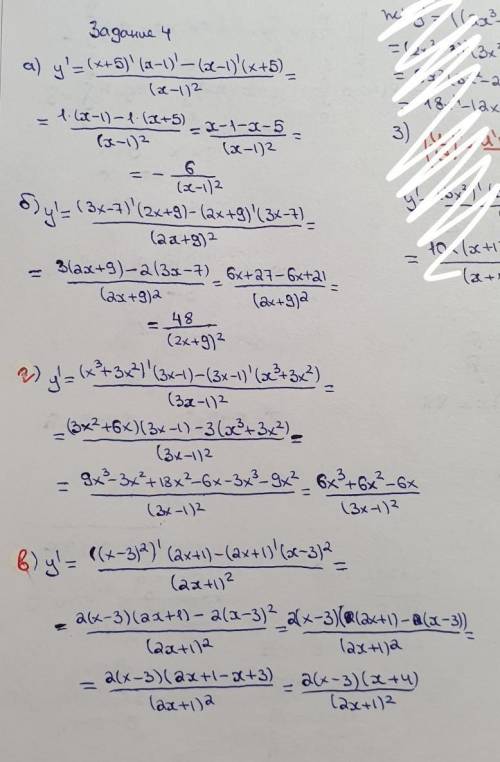 Задание 4
а) y' = ((x+5)'(x-1)-(x-1)'(x+5))/(x-1)² =
= (1·(x-1)-1·(x+5))/(x-1)² = (x-1-x-5)/(x-1)² =
= - 6/(x-1)²
б) y' = ((3x-7)'(2x+9)-(2x+9)'(3x-7))/(2x+9)² =
= (3(2x+9)-2(3x-7))/(2x+9)² = (6x+27-6x+21)/(2x+9)² =
= 48/(2x+9)²
г) y' = ((x³+3x²)'(3x-1)-(3x-1)'(x³+3x²))/(3x-1)² =
= ((3x²+6x)(3x-1)-3(x³+3x²))/(3x-1)² =
= (9x³-3x²+18x²-6x-3x³-9x²)/(3x-1)² = (6x³+6x²-6x)/(3x-1)²
в) y' = (((x-3)²)'(2x+1)-(2x+1)'(x-3)²)/(2x+1)² =
= (2(x-3)(2x+1)-2(x-3)²)/(2x+1)² = (2(x-3)((2x+1)-(x-3)))/(2x+1)² =
= (2(x-3)(2x+1-x+3))/(2x+1)² = (2(x-3)(x+4))/(2x+1)²
3)